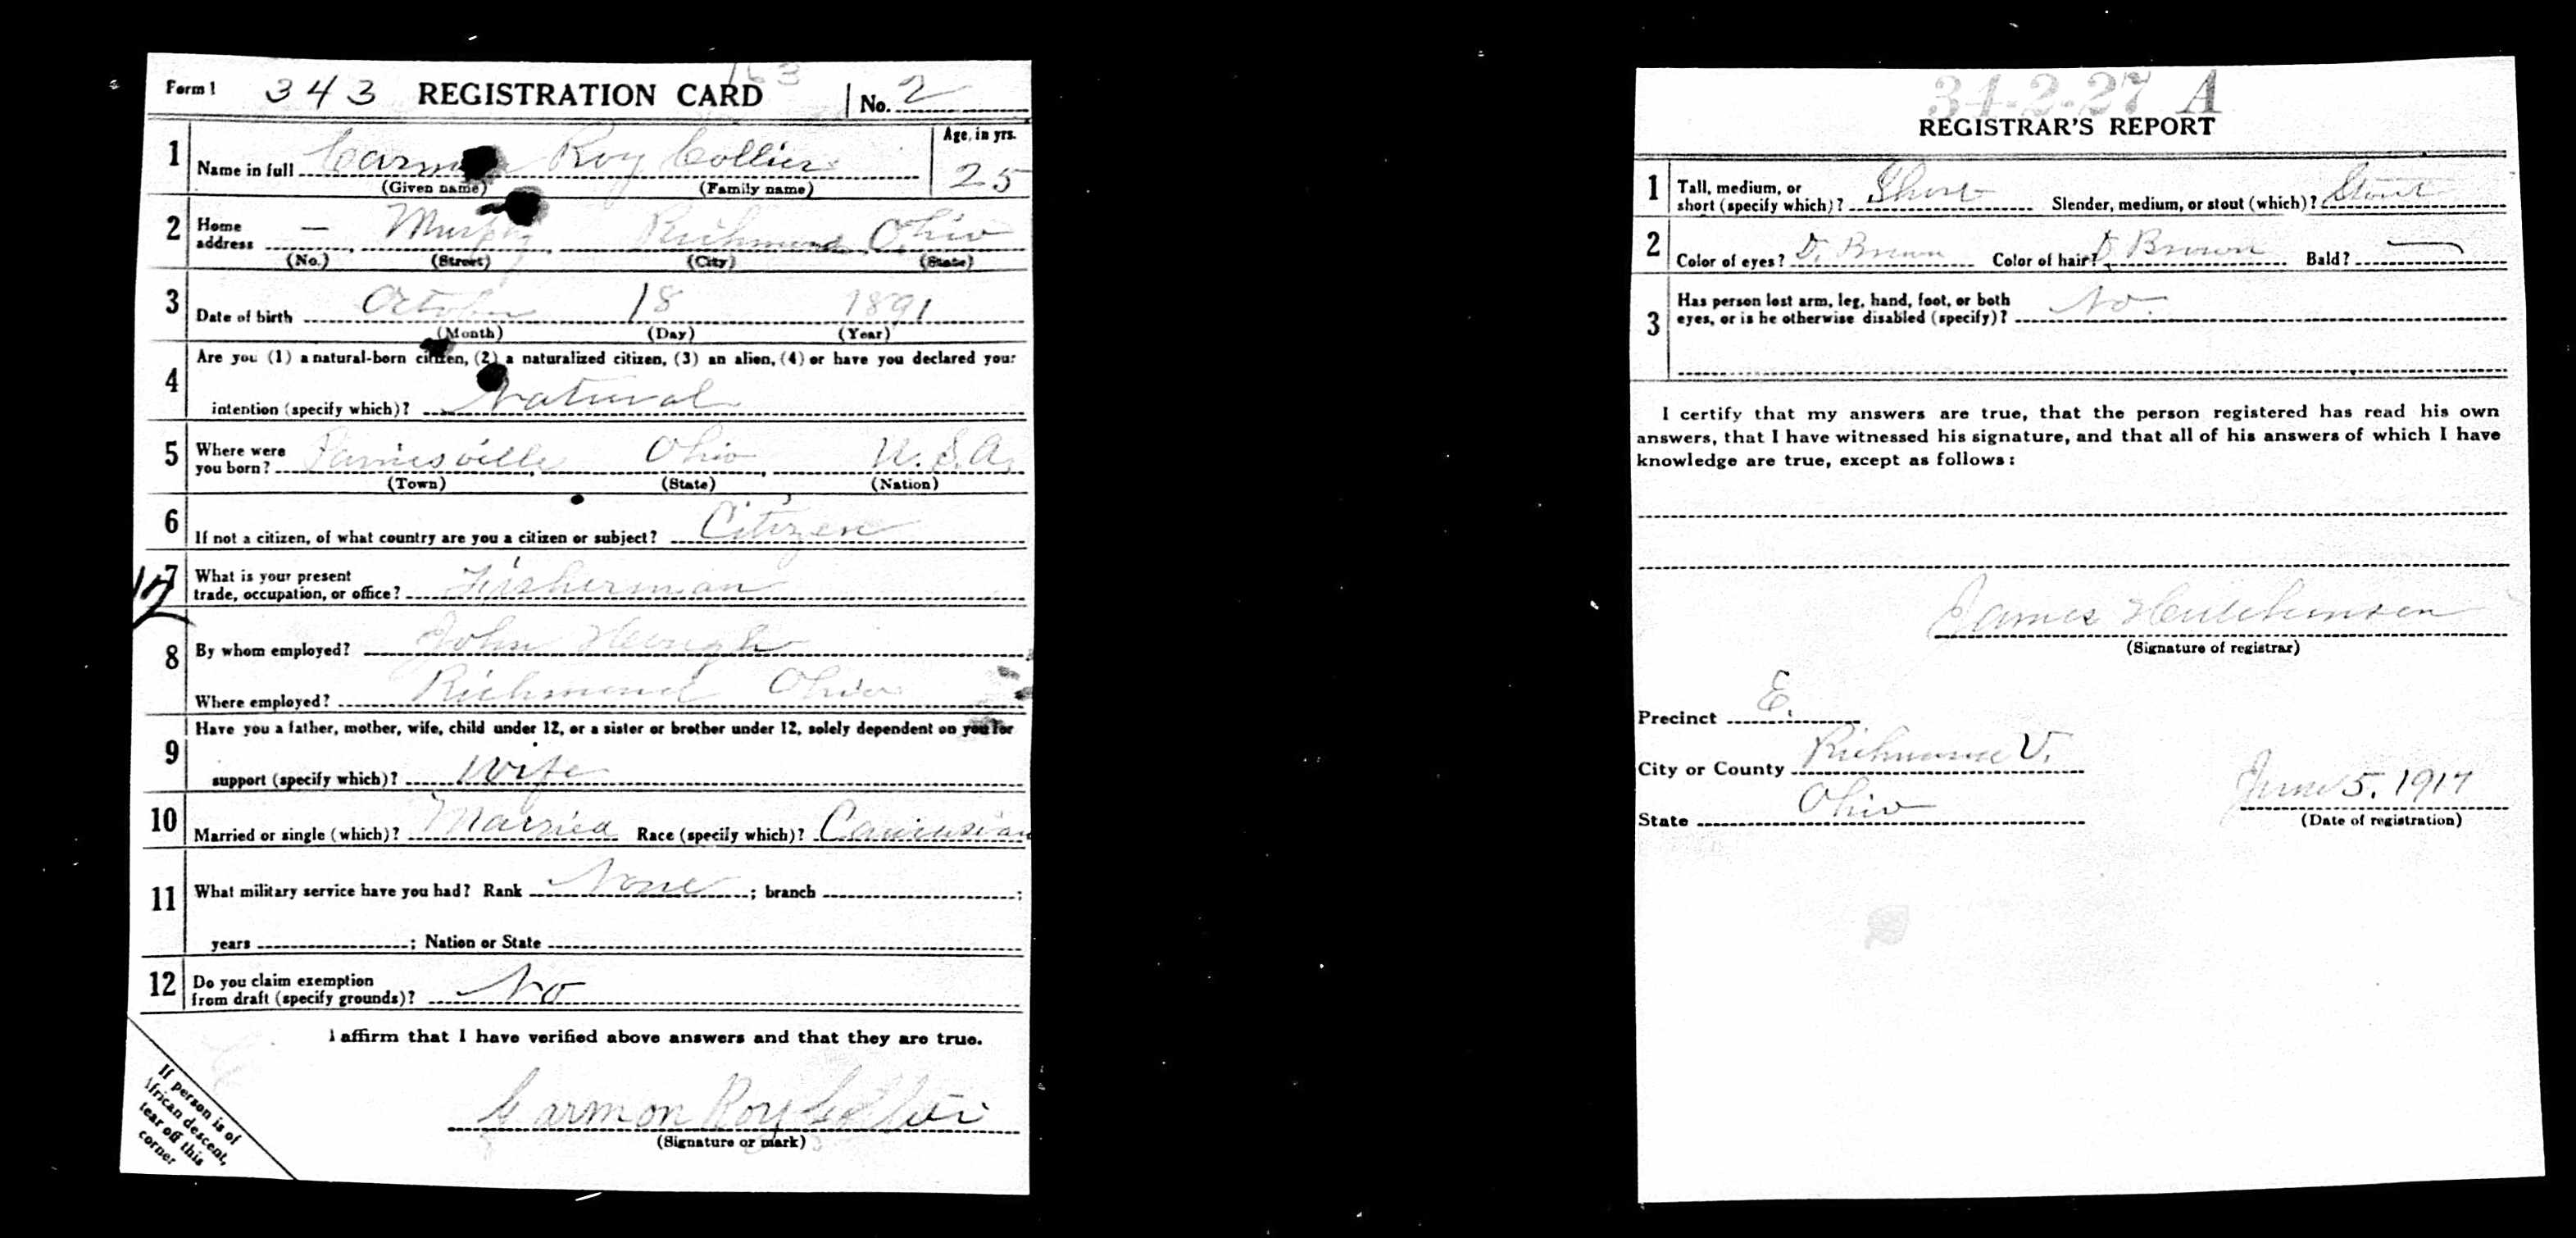 Form 1 343 REGISTRATION CARD 163 No. 2
1 Name in full Carmon Roy Collier Age, in yrs. 25
(Given name) (Family name)
2 Home address — Murphy Richmond Ohio
(No.) (Street) (City) (State)
3 Date of birth October 18 1891
(Month) (Day) (Year)
4 Are you (1) a natural-born citizen, (2) a naturalized citizen, (3) an alien, (4) or have you declared your
intention (specify which)? Natural
5 Where were you born? Painesville Ohio U.S.A.
(Town) (State) (Nation)
6 If not a citizen, of what country are you a citizen or subject? Citizen
7 What is your present trade, occupation, or office? Fisherman
12
8 By whom employed? John
Where employed? Richmond Ohio
9 Have you a father, mother, wife, child under 12, or a sister or brother under 12, solely dependent on you for
support (specify which)? Wife
10 Married or single (which)? Married Race (specify which)? Caucasian
11 What military service have you had? Rank None ; branch ;
years ; Nation or State
12 Do you claim exemption from draft (specify grounds)? No
I affirm that I have verified above answers and that they are true.
Carmon Roy Collier
(Signature or mark)
If person is of
African descent,
tear off this
corner
34-2-27 A
REGISTRAR'S REPORT
1 Tall, medium, or short (specify which)? Short Slender, medium, or stout (which)? Stout
2 Color of eyes? D. Brown Color of hair? D Brown Bald? —
3 Has person lost arm, leg, hand, foot, or both eyes, or is he otherwise disabled (specify)? No.
I certify that my answers are true, that the person registered has read his own
answers, that I have witnessed his signature, and that all of his answers of which I have
knowledge are true, except as follows:
James Hutchinson
(Signature of registrar)
Precinct E.
City or County Richmond V.
State Ohio
June 5, 1917
(Date of registration)